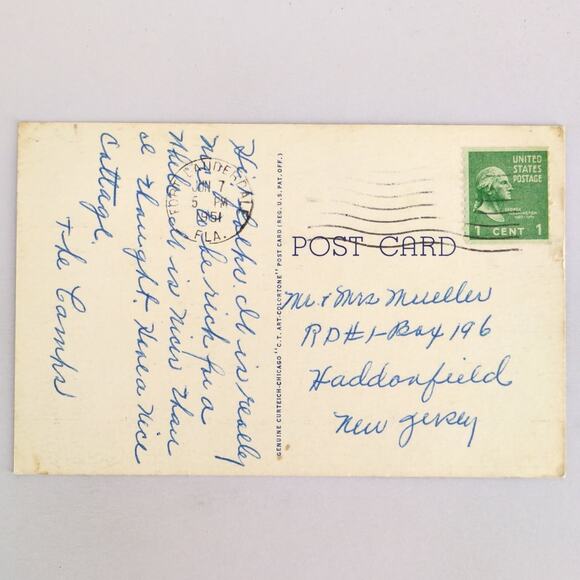 Hi Folks. It is really
nice to be rich for a
while. It is nicer than
I thought. Have a nice
Cottage.
The Camps
FORT LAUDERDALE
JUN 7
5 PM
1951
FLA.
GENUINE CURTEICH-CHICAGO "C.T. ART-COLORTONE" POST CARD (REG. U.S. PAT. OFF.)
UNITED
STATES
POSTAGE
GEORGE
WASHINGTON
1 CENT 1
POST CARD
Mr & Mrs Mueller
RD#1-Box 196
Haddonfield
New Jersey